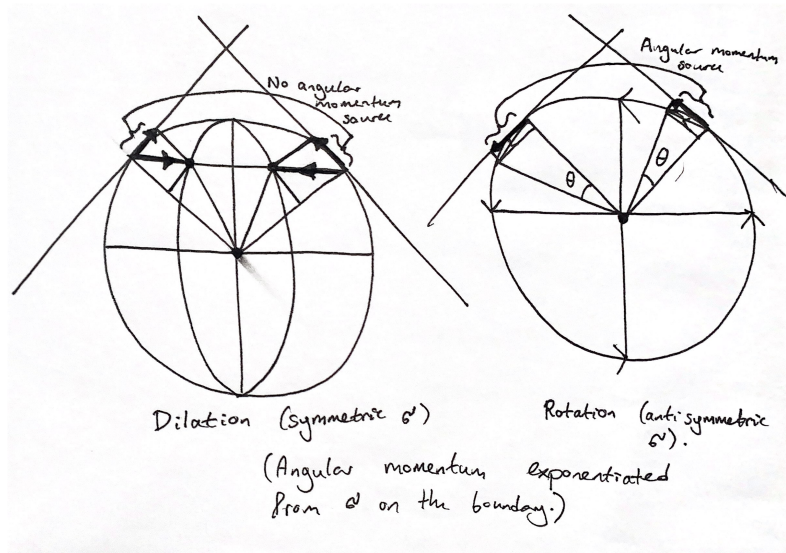 No angular
momentum
source
Angular momentum
source
θ
θ
Dilation (symmetric σ)
Rotation (antisymmetric
σ).
(Angular momentum exponentiated
from σ on the boundary.)